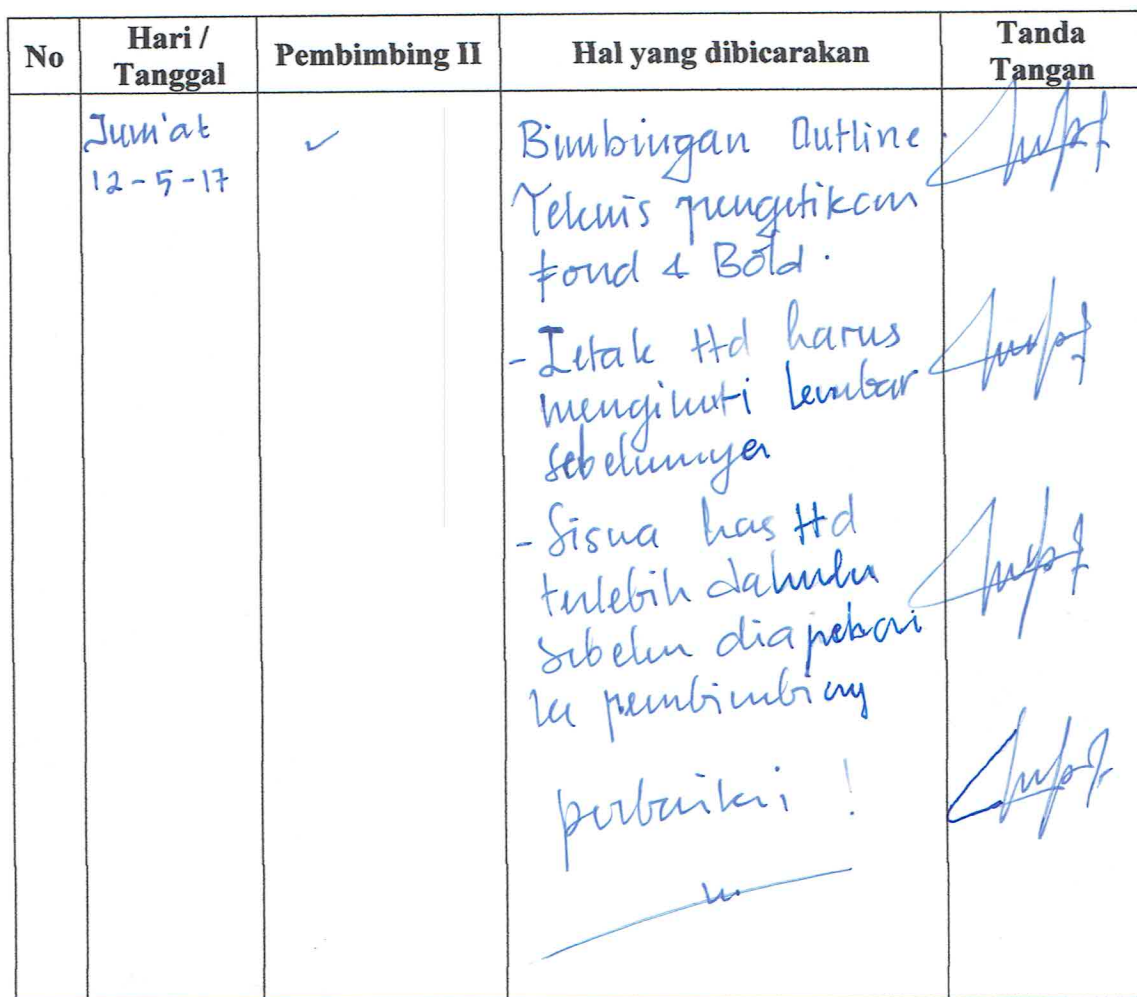 No
Hari /
Tanggal
Pembimbing II
Hal yang dibicarakan
Tanda
Tangan
Jum'at
12-5-17
✓
Bimbingan Outline.
Teknis pengetikan
Fond & Bold.
- Letak ttd harus
mengikuti lembar
sebelumnya
- Siswa has ttd
terlebih dahulu
sebelum
ke pembimbing
perbaiki !